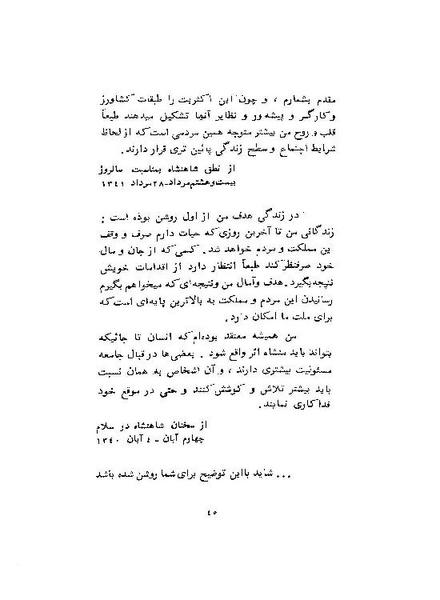 مقدم بشمارم ، و چون این اکثریت را طبقات کشاورز
و کارگر و پیشه ور و نظایر آنها تشکیل میدهند طبعاً
قلب و روح من بیشتر متوجه همین مردمی است که از لحاظ
شرایط اجتماع و سطح زندگی پائین تری قرار دارند.
از نطق شاهنشاه بمناسبت سالروز
بیست و هشتم مرداد-۲۸ مرداد ۱۳۴۱
در زندگی هدف من از اول روشن بوده است :
زندگانی من تا آخرین روزی که حیات دارم صرف و وقف
این مملکت و مردم خواهد شد. کسی که از جان و مال
خود صرفنظر کند طبعاً انتظار دارد از اقدامات خویش
نتیجه بگیرد. هدف و آمال من و نتیجه ای که میخواهم بگیرم
رسانیدن این مردم و مملکت به بالاترین پایه ای است که
برای ملت ما امکان دارد.
من همیشه معتقد بوده ام که انسان تا جائیکه
بتواند باید منشاء اثر واقع شود . بعضی ها در قبال جامعه
مسئولیت بیشتری دارند ، و آن اشخاص به همان نسبت
باید بیشتر تلاش و کوشش کنند و حتی در موقع خود
فداکاری نمایند.
از سخنان شاهنشاه در سلام
چهارم آبان - ٤ آبان ۱۳۴۰
... شاید با این توضیح برای شما روشن شده باشد
٤٥